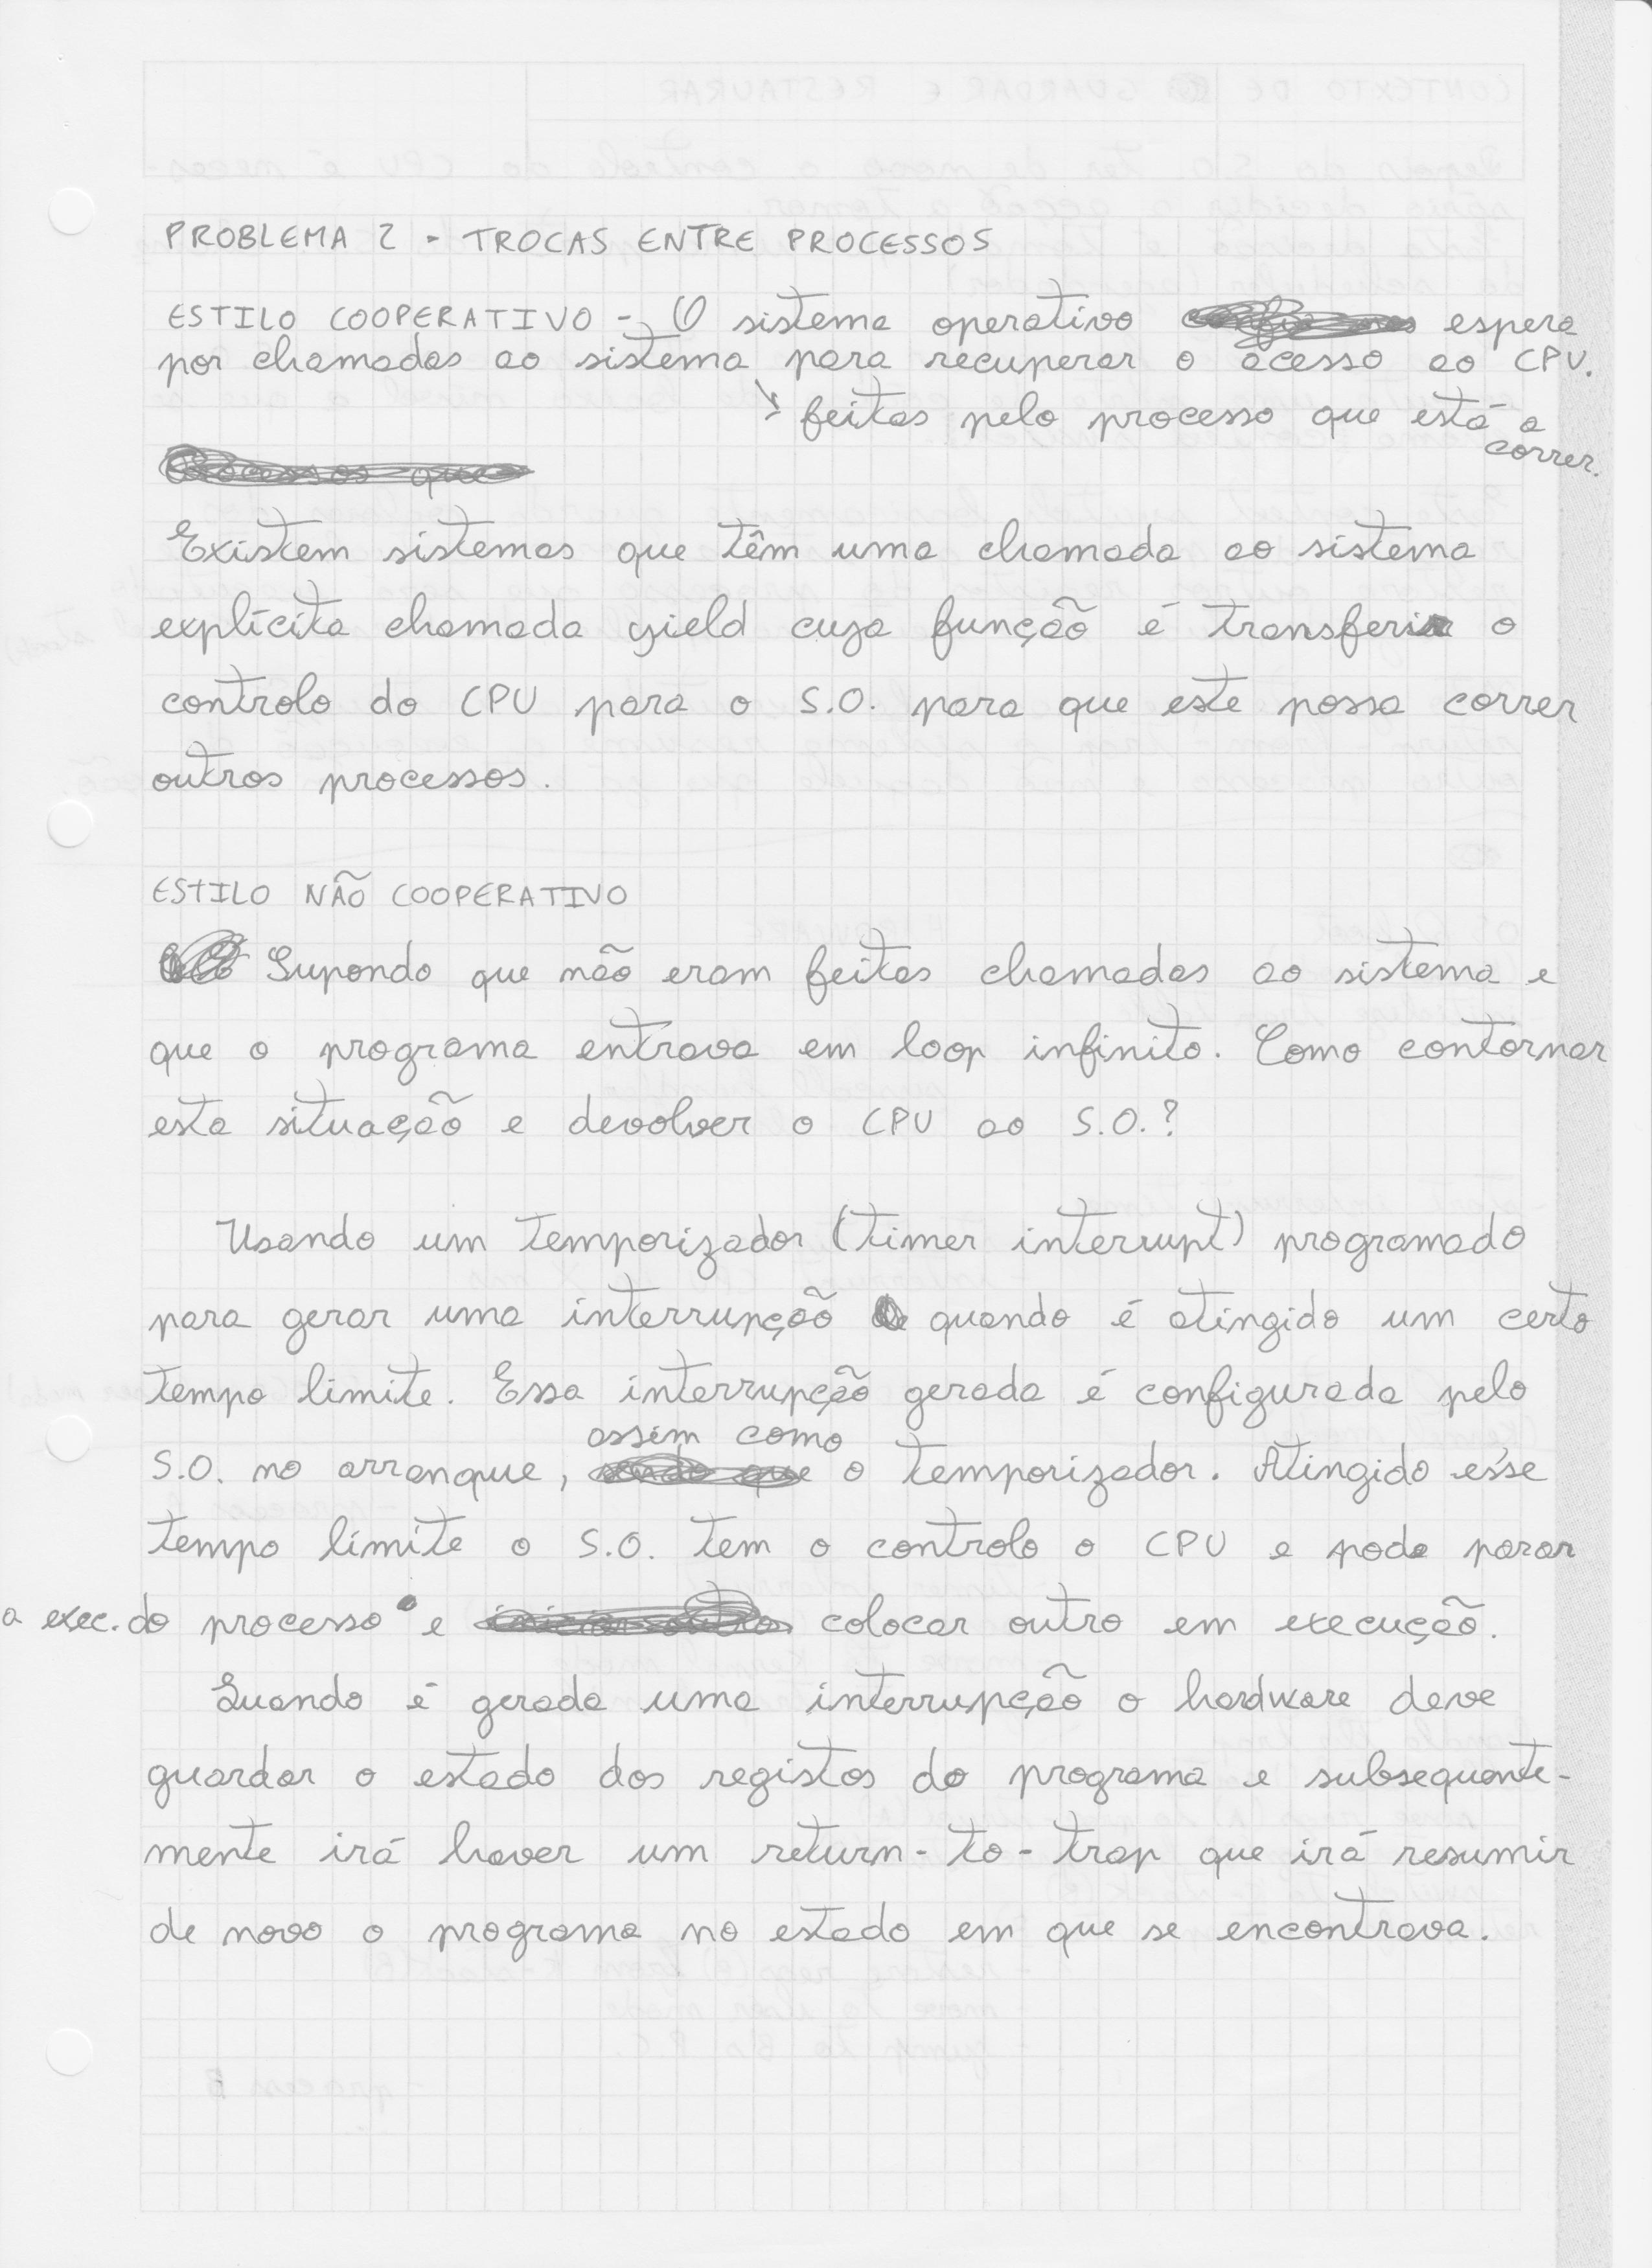 PROBLEMA 2 - TROCAS ENTRE PROCESSOS
ESTILO COOPERATIVO - O sistema operativo espera
por chamadas ao sistema para recuperar o acesso ao CPU.
↳ feitas pelo processo que está a
correr.
Processos que
Existem sistemas que têm uma chamada ao sistema
explícita chamada yield cuja função é transferir o
controlo do CPU para o S.O. para que este possa correr
outros processos.
ESTILO NÃO COOPERATIVO
Supondo que não eram feitas chamadas ao sistema e
que o programa entrava em loop infinito. Como contornar
esta situação e devolver o CPU ao S.O.?
Usando um temporizador (timer interrupt) programado
para gerar uma interrupção quando é atingido um certo
tempo limite. Essa interrupção gerada é configurada pelo
assim como
S.O. no arranque, o temporizador. Atingido esse
tempo limite o S.O. tem o controlo o CPU e pode parar
a exec. do processo e iniciar outro colocar outro em execução.
Quando é gerada uma interrupção o hardware deve
guardar o estado dos registos do programa e subsequente-
mente irá haver um return-to-trap que irá resumir
de novo o programa no estado em que se encontrava.